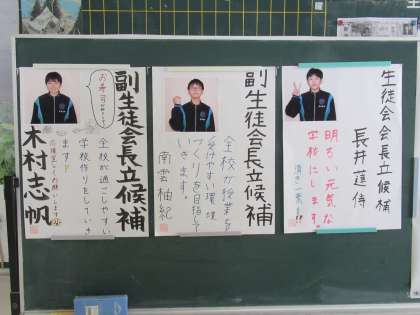 生徒会会長立候補
長井蓮侍
明るい元気な
学校にします。
清き一票を!!
副生徒会長立候補
全校が授業を
受けやすい環境
づくりを目指して
いきます。
南雲柚紀
副生徒会長立候補
お寿司
全校が過ごしやすい
学校作りをしていき
ます!
木村志帆